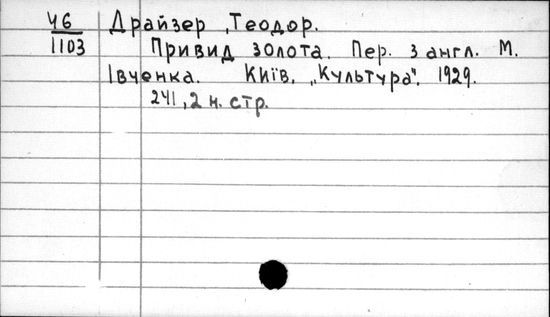 46
1103
Драйзер, Теодор.
Привид золота. Пер. з англ. М.
Івченка. Київ, „Культура“, 1929.
241, 2 н. стр.